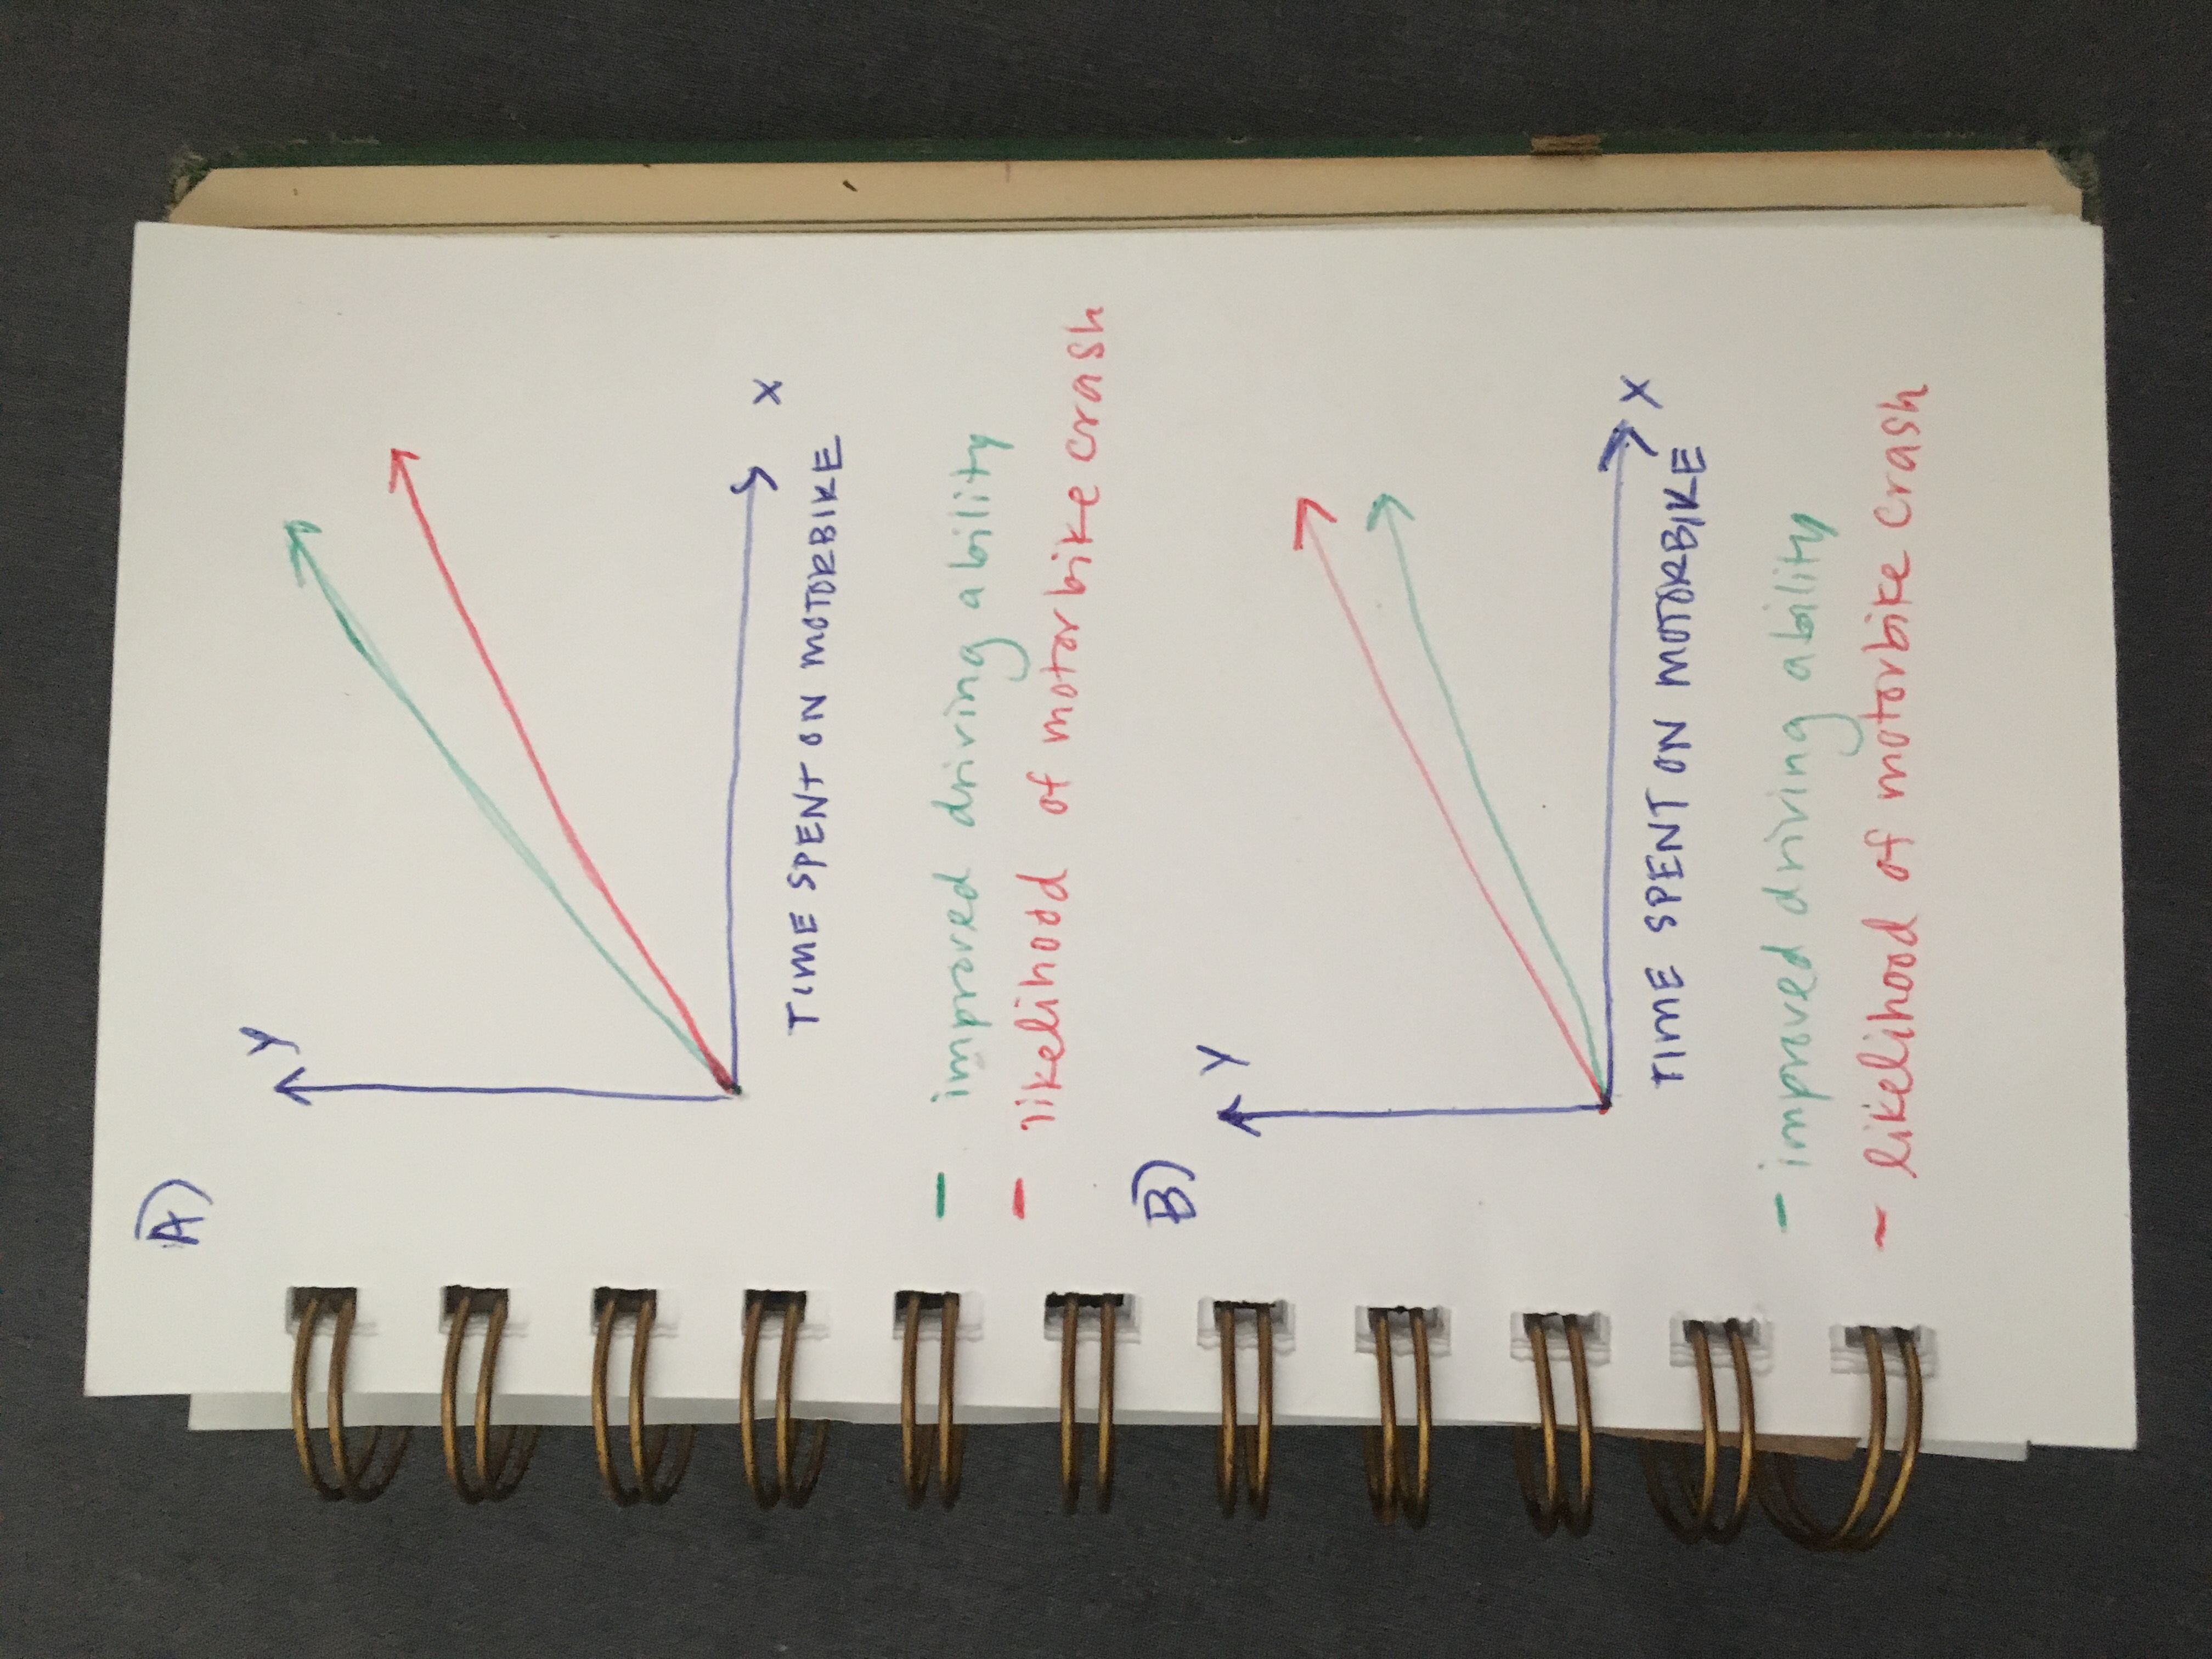 A)
Y
X
TIME SPENT ON MOTORBIKE
- improved driving ability
- likelihood of motorbike crash
B)
Y
X
TIME SPENT ON MOTORBIKE
- improved driving ability
- likelihood of motorbike crash